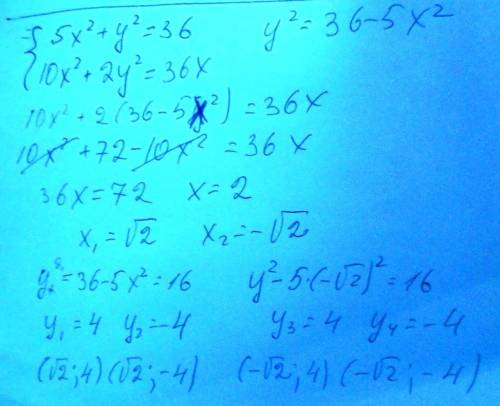 {5x²+y²=36    y²=36-5x²
{10x²+2y²=36x
10x²+2(36-5x²)=36x
10x²+72-10x²=36x
36x=72    x=2
x₁=√2    x₂=-√2
=36-5x²=16    y²-5·(-√2)²=16
y₁=4    y₂=-4    y₃=4    y₄=-4
(√2;4)(√2;-4)    (-√2;4)(-√2;-4)